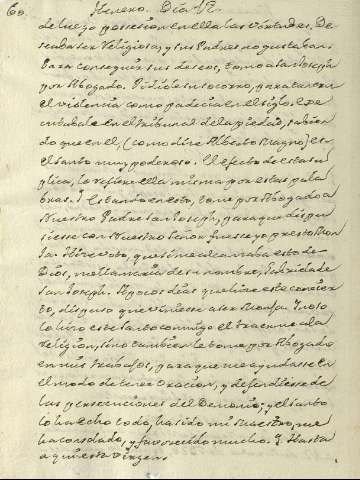 60. Henero. Dia VI.
de luego possesion en ella las virtudes. De
seaba ser Religiosa, y sus Padres no gustaban.
Para conseguir sus deseos, tomo a San Joseph
por Abogado. Pidiole su socorro, para tanta
violencia como padecia en el siglo, e
en el tribunal de la piedad, sabien
do que en el, (como dixo Alberto Magno) es
el santo muy poderoso. El efecto de esta su
plica, lo refiere ella misma por estas pala
bras. Estando en esto, tome por Abogado a
Nuestro Padre San Joseph, para que dispu
siesse con Nuestro Señor fuesse yo presto Mon
ja. Hice voto, que si me alcanzaba esto de
Dios, me llamaria de su nombre,
San Joseph. A pocos dias que hice este concier
to, dispuso que viniesse a ser Monja. Y no so
lo hizo este santo conmigo el traerme a la
Religion, sino tambien le tome por Abogado
en mis trabajos, para que me ayudasse en
el modo de tener oracion, y defendiesse de
las persecuciones del Demonio; y el santo
lo ha echo todo, ha sido mi Maestro, me
ha consolado, y favorecido mucho. Hasta
aqui esta Virgen.